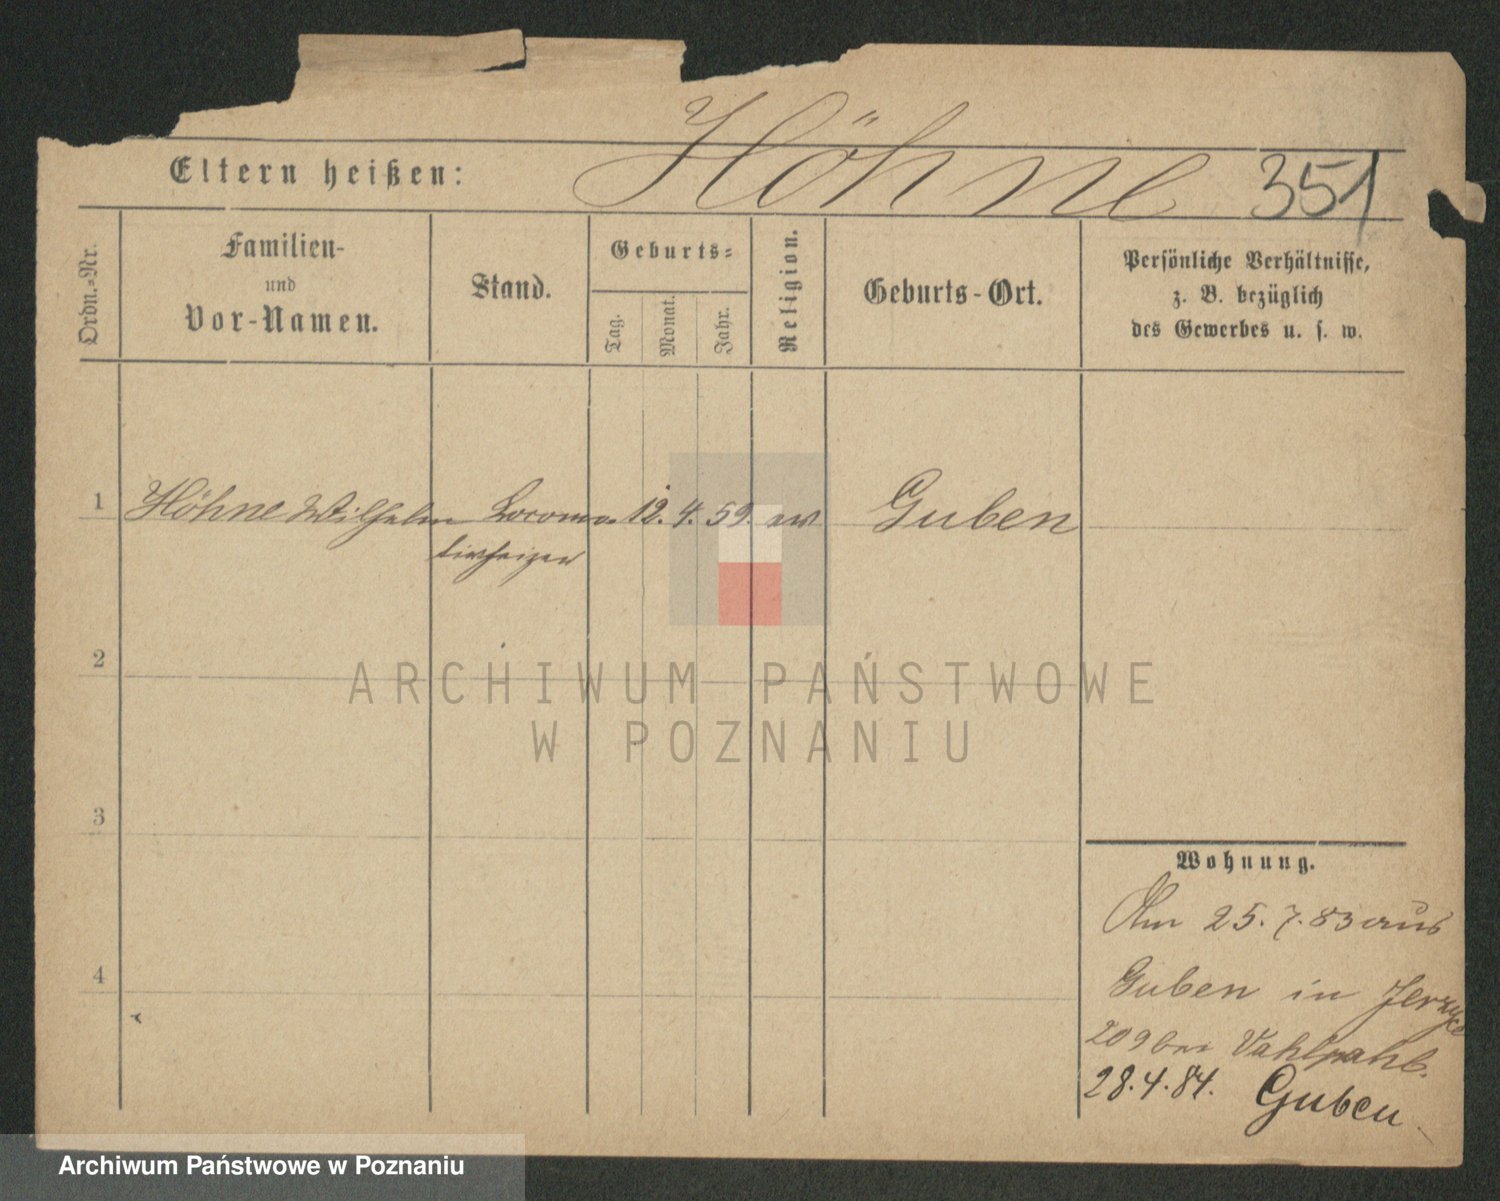 Höhne 351
Eltern heißen:
Ordn.-Nr.
Familien-
und
Vor-Namen.
Stand.
Geburts-
Tag.
Monat.
Jahr.
Religion.
Geburts-Ort.
Persönliche Verhältnisse,
z. B. bezüglich
des Gewerbes u. s. w.
1 Höhne Wilhelm Locomo- 12. 4. 59. ev Guben
tivheizer
2
3
4
Wohnung.
Am 25. 7. 83 aus
Guben in Jerzyce
209 bei
28. 4. 84. Guben
ARCHIWUM PAŃSTWOWE
W POZNANIU
Archiwum Państwowe w Poznaniu